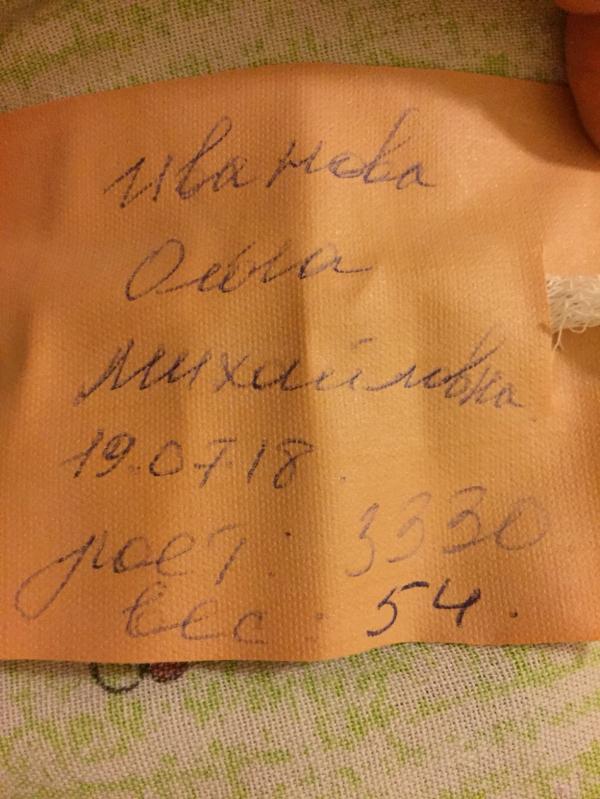 Иванова
Ольга
Михайловна
19.07.18.
рост: 3330
вес: 54.